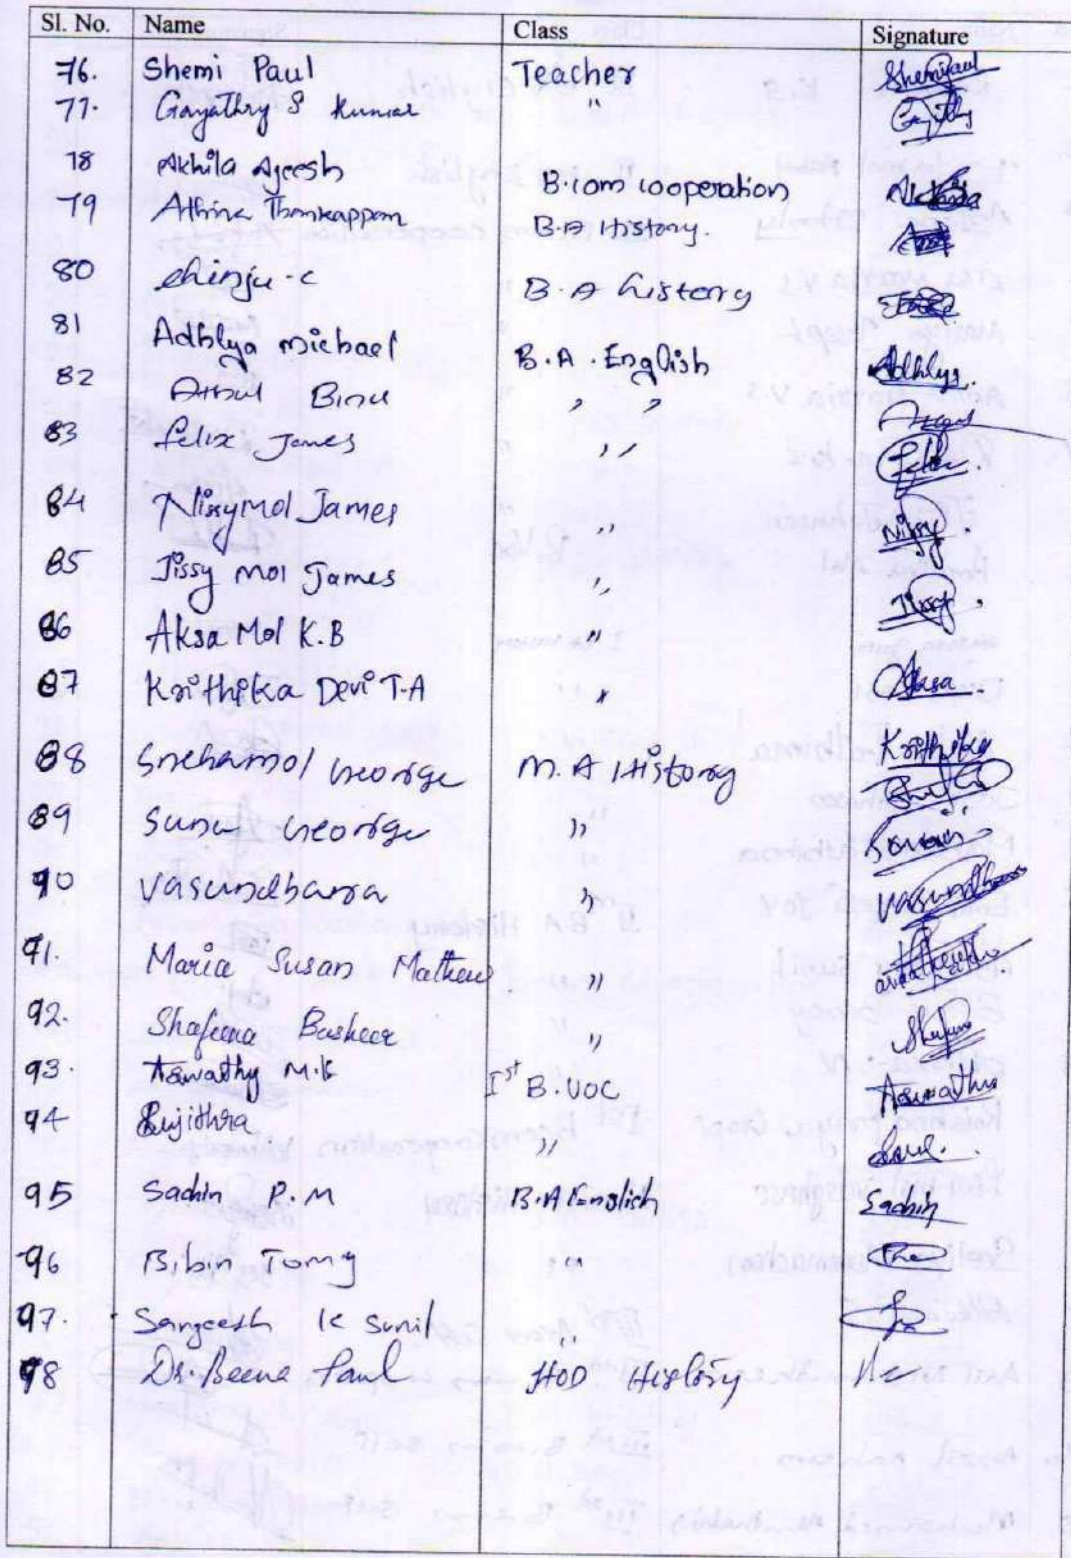 Sl. No. Name Class Signature
76. Shemi Paul Teacher Shemipaul
77. Gayathry S Kumar "
78 Akhila Ajeesh B.com cooperation
79 Athira Thankappan B.A History.
80 chinju-c B.A history
81 Adhlya michael B.A. English Adhlya.
82 Binu , ,
83 felix James ,, Felix.
84 Nissymol James ,, Nissy.
85 Jissy Mol James ,, Jissy.
86 Aksa Mol K.B "
87 Krithika Devi T.A " Aksa.
88 Snehamol George M.A History Krithika
89 George "
90 vasundhara " vasundhara
91. Maria Susan Mathew "
92. Shafeena Basheer "
93. Aswathy M.K Ist B.VOC Aswathy
94 Sujithra "
95 Sachin P.M B.A English Sachin
96 Bibin Tomy "
97. Sangeeth K Sunil "
98 Dr. Beena Paul HOD History